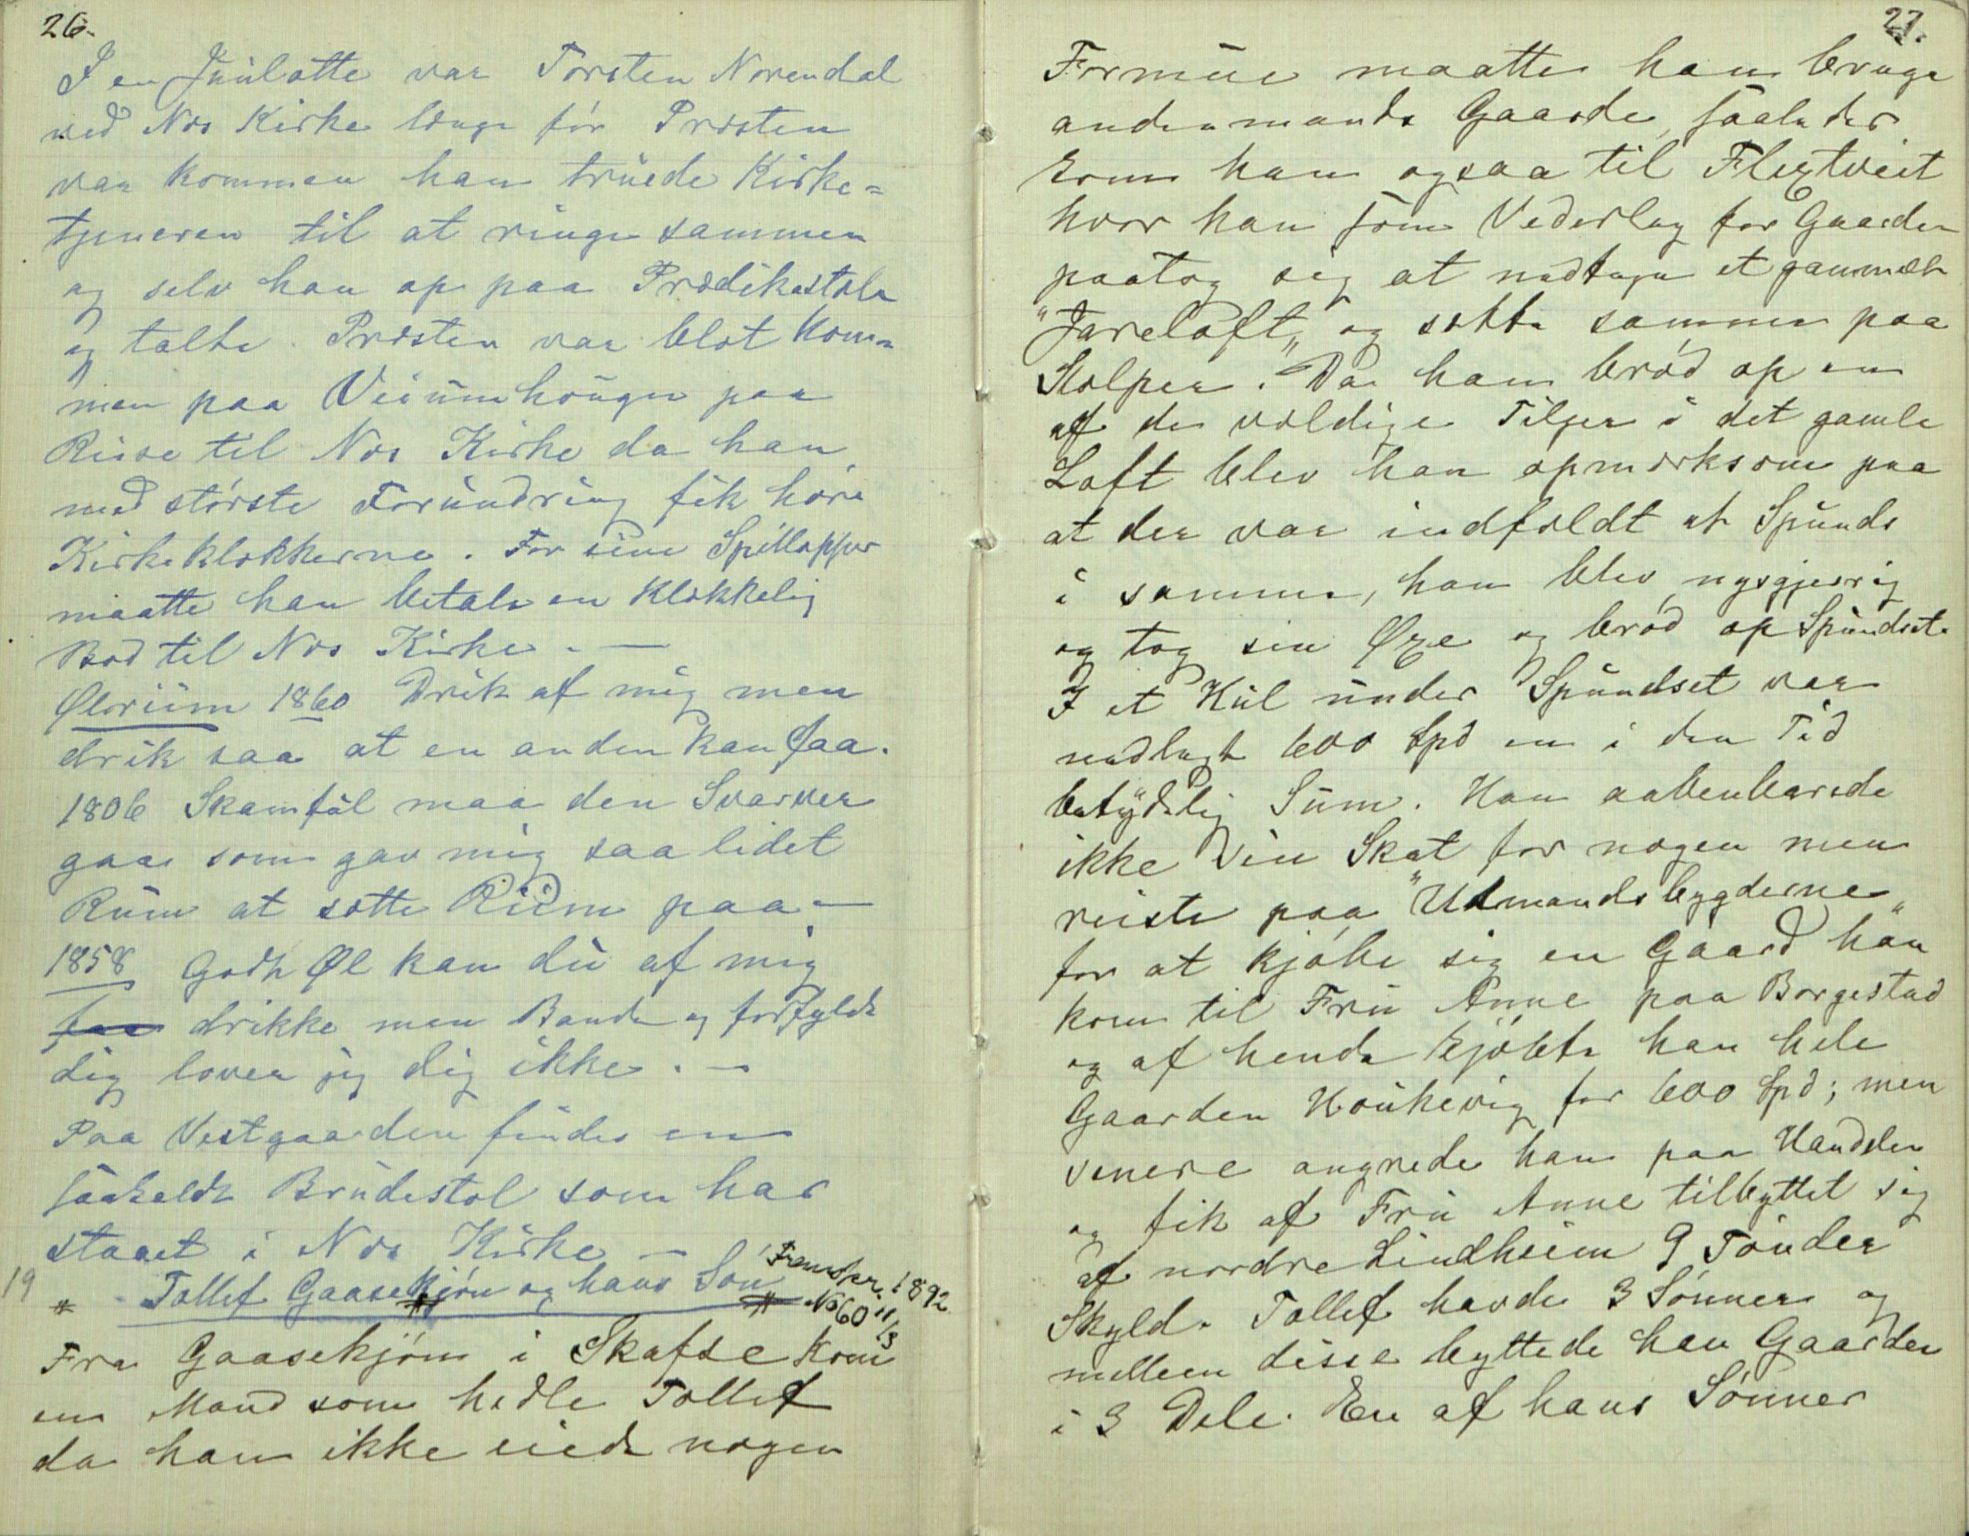 26.
I en Juulotte var Torsten Norendal
ved Nes Kirke længe før Præsten
var kommen han truede Kirke=
tjeneren til at ringe sammen
og selv han op paa Prædikestolen
og talte. Præsten var blot kom=
men paa Veiumhougen paa
Reise til Nes Kirke da han
med største Forundring fik høre
Kirkeklokkerne. For sine Spillopper
maatte han betale en klækkelig
Bod til Nes Kirke. —
Ølorium 1860 Drik af mig men
drik saa at en anden kan faa.
1806 Skamfül maa den Svarver
gaa som gav mig saa lidet
Rum at sætte Riim paa —
1858 Godt Øl kan du af mig
faa drikke men Bande og forfylde
dig lover jeg dig ikke. —
Paa Vestgaarden findes en
saakaldt Brudestol som har
staaet i Nes Kirke —
19 # Tollef Gaasekjøn og hans Søn # Fremskr. 1892. No 60 11/3
Fra Gaasekjøn i Skafse kom
en Mand som hedte Tollef
da han ikke eiede nogen
27.
Formue maatte han bruge
andenmands Gaarde, saaledes
kom han ogsaa til Flextveit
hvor han som Vederlag for Gaarden
paatog sig at nedtage et gammelt
"Jareloft" og sætte sammen paa
Stolper. Da han brød op en
af de vældige Tiljer i det gamle
Loft blev han opmærksom paa
at der var indfældt et Spunds
i samme, han blev nysgjerrig
og tog sin Øxe og brød op Spundset.
I et Hul under Spundset var
nedlagt 600 Spd en i den Tid
betydelig Sum. Han aabenbarede
ikke sin Skat for nogen men
reiste paa "Udmandsbygderne"
for at kjøbe sig en Gaard han
kom til Fru Anne paa Borgestad
og af hende kjøbte han hele
Gaarden Houkevig for 600 Spd; men
senere angrede han paa Handelen
og fik af Fru Anne tilbyttet sig
af nordre Lindheim 9 Tønder
Skyld. Tollef havde 3 Sønner og
mellem disse byttede han Gaarden
i 3 Dele. En af hans Sønner